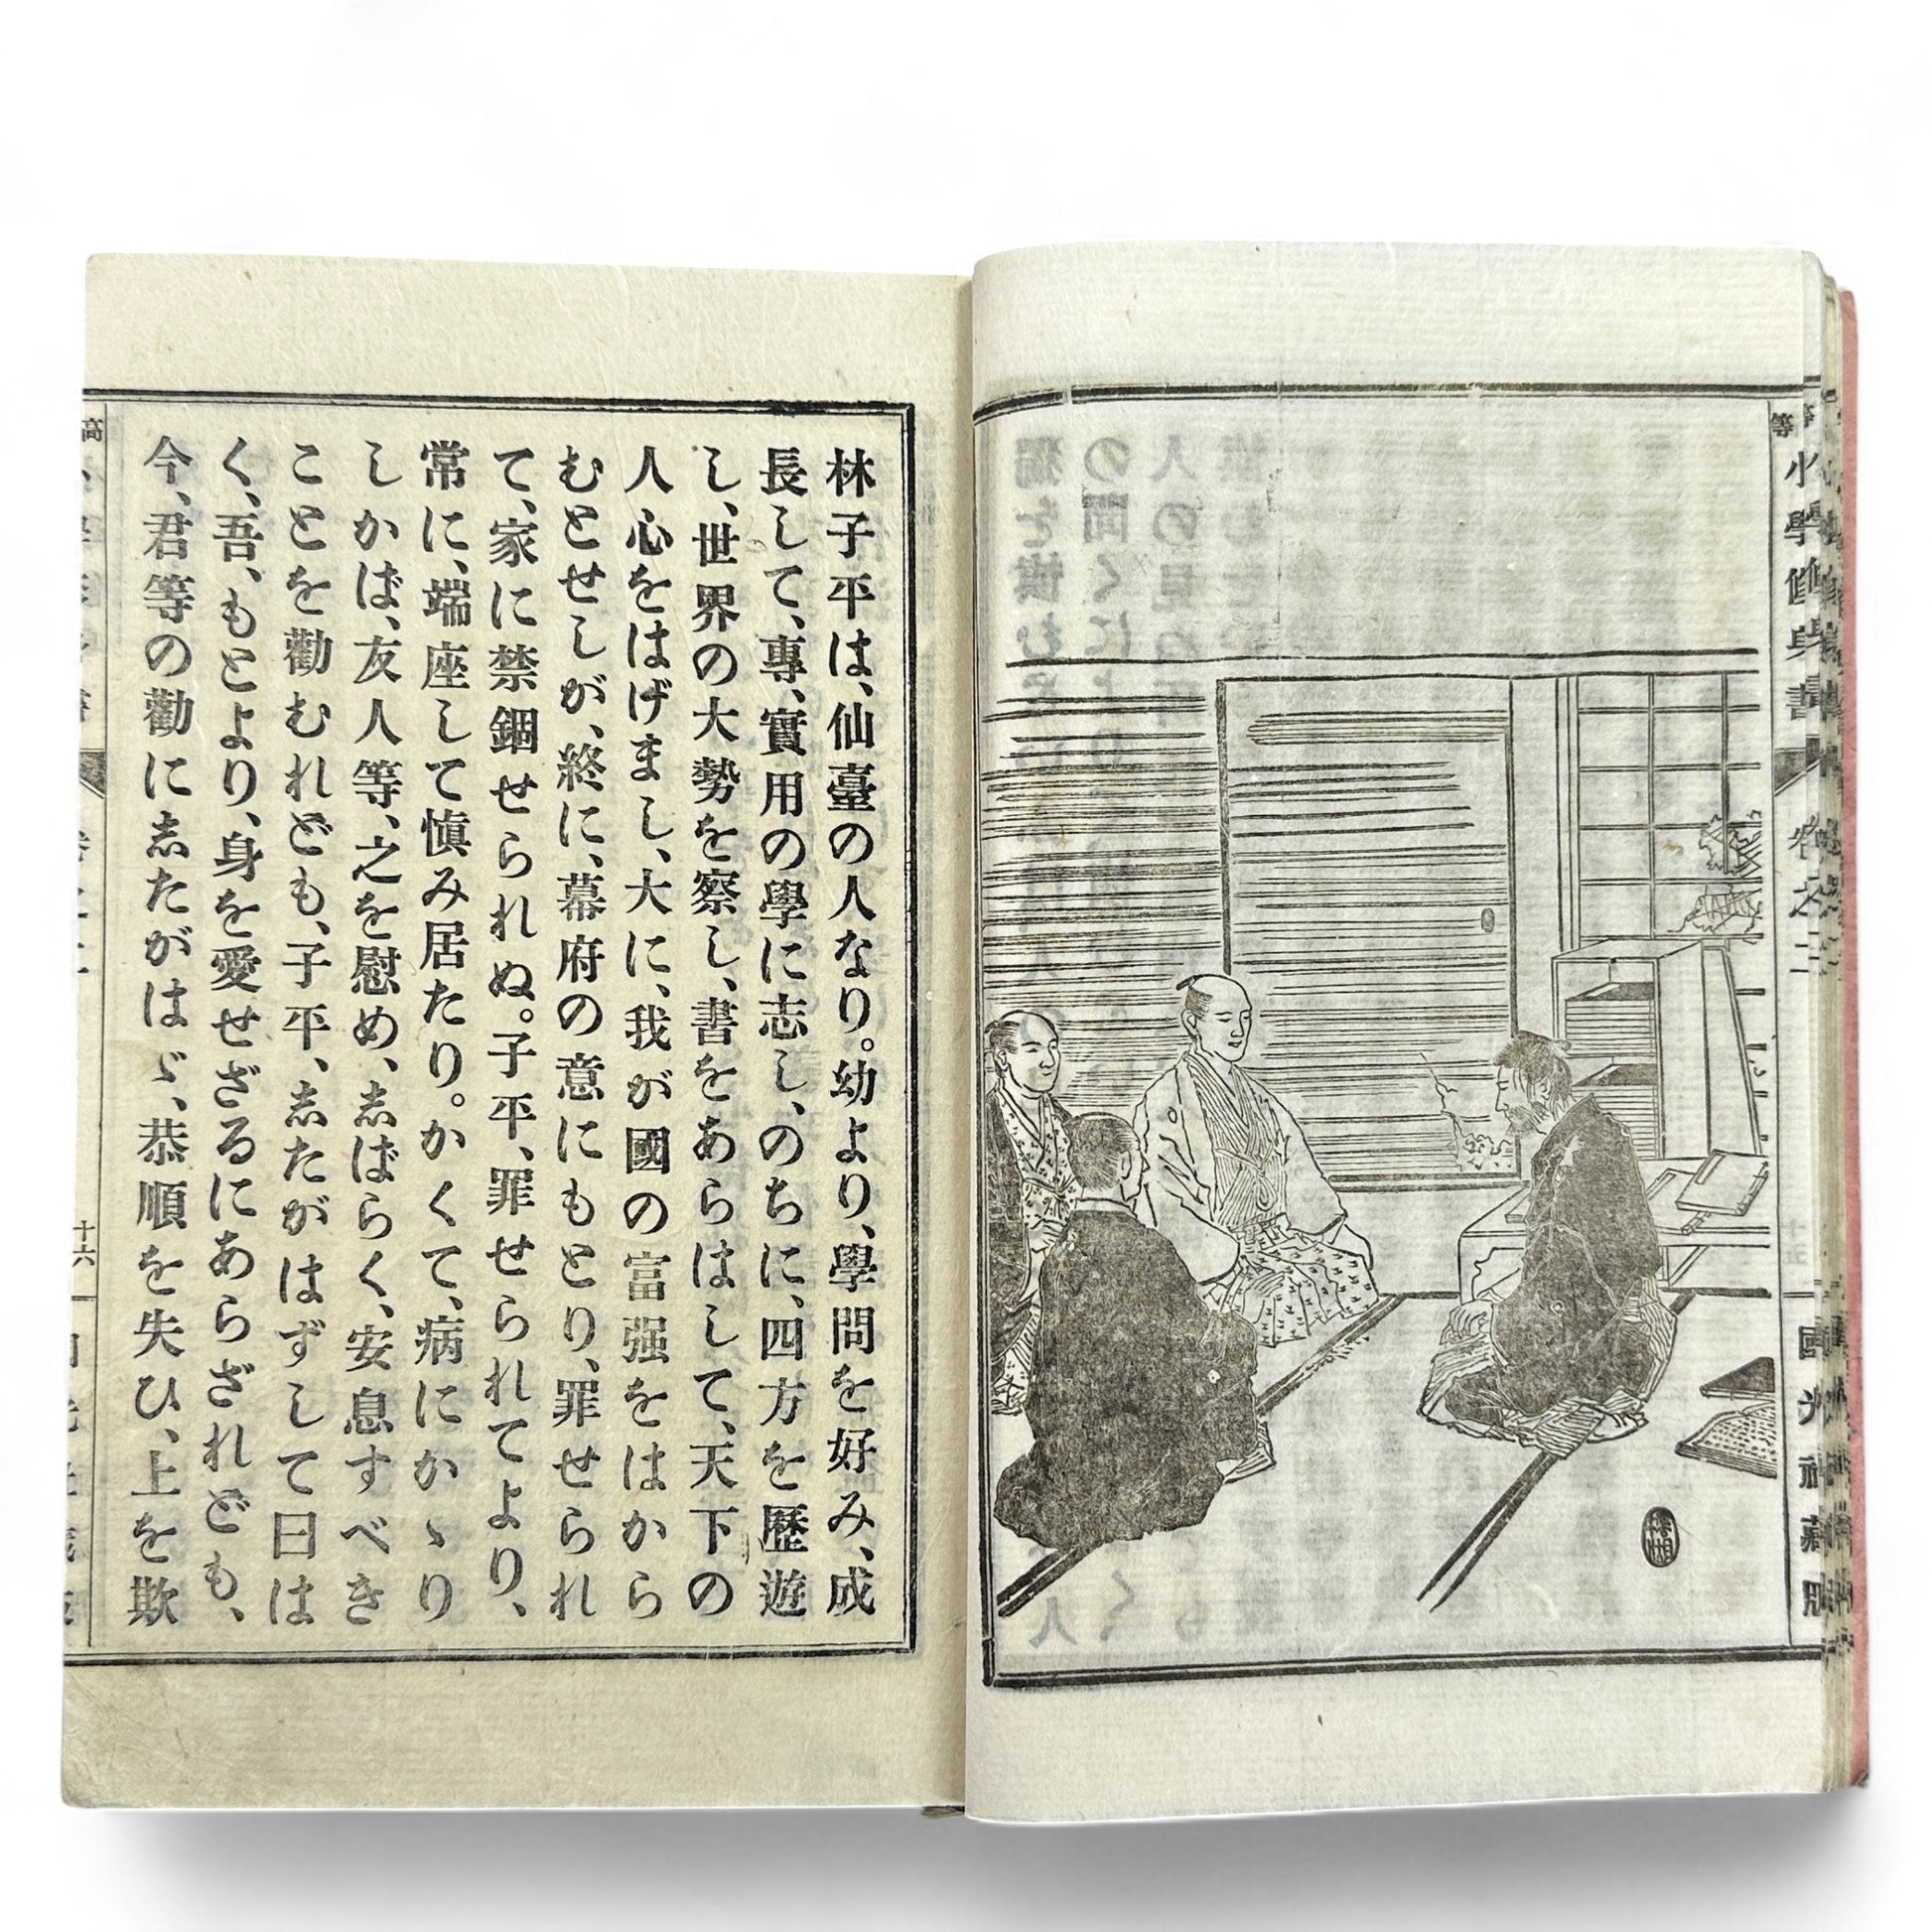 等小學修身書
卷之二
國光社藏版
林子平は、仙臺の人なり。幼より、學問を好み、成
長して、專、實用の學に志し、のちに、四方を歷遊
し、世界の大勢を察し、書をあらはして、天下の
人心をはげまし、大に、我が國の富强をはから
むとせしが、終に、幕府の意にもとり、罪せられ
て、家に禁錮せられぬ。子平、罪せられてより、
常に、端座して愼み居たり。かくて、病にかゝり
しかば、友人等、之を慰め、志ばらく、安息すべき
ことを勸むれども、子平、志たがはずして曰は
く、吾、もとより、身を愛せざるにあらざれども、
今、君等の勸に志たがはゞ、恭順を失ひ、上を欺
高
十六